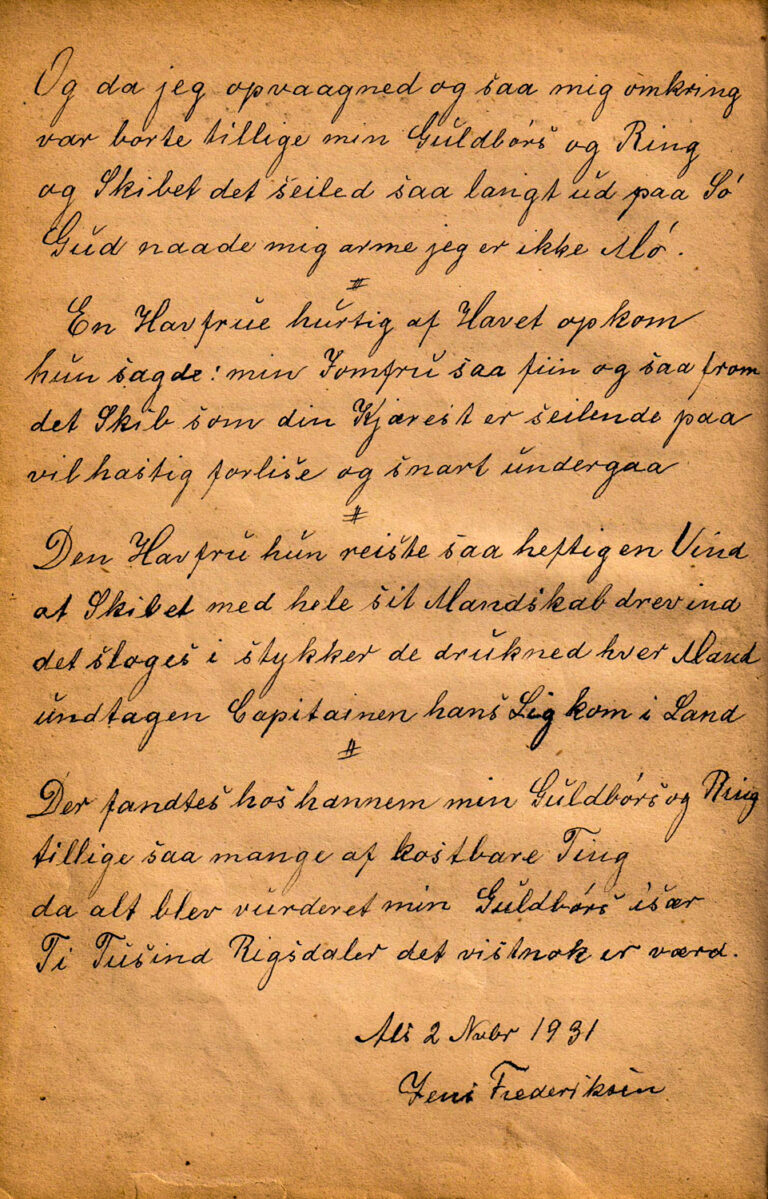 Og da jeg opvaagned og saa mig omkring
var borte tillige min Guldbörs og Ring
og Skibet det seiled saa langt ud paa Sö
Gud naade mig arme jeg er ikke Mö.
#
En Havfrue hurtig af Havet opkom
hun sagde: min Jomfru saa fiin og saa from
det Skib som din Kjærest er seilende paa
vil hastig forlise og snart undergaa
#
Den Havfru hun reiste saa heftig en Vind
at Skibet med hele sit Mandskab drev ind
det sloges i stykker de drukned hver Mand
undtagen Capitainen hans Lig kom i Land
#
Der fandtes hos hannem min Guldbörs og Ring
tillige saa mange af kostbare Ting
da alt blev vurderet min Guldbörs især
Ti Tusind Rigsdaler det vistnok er værd.
Als 2 Nvbr 1931
Jens Frederiksen